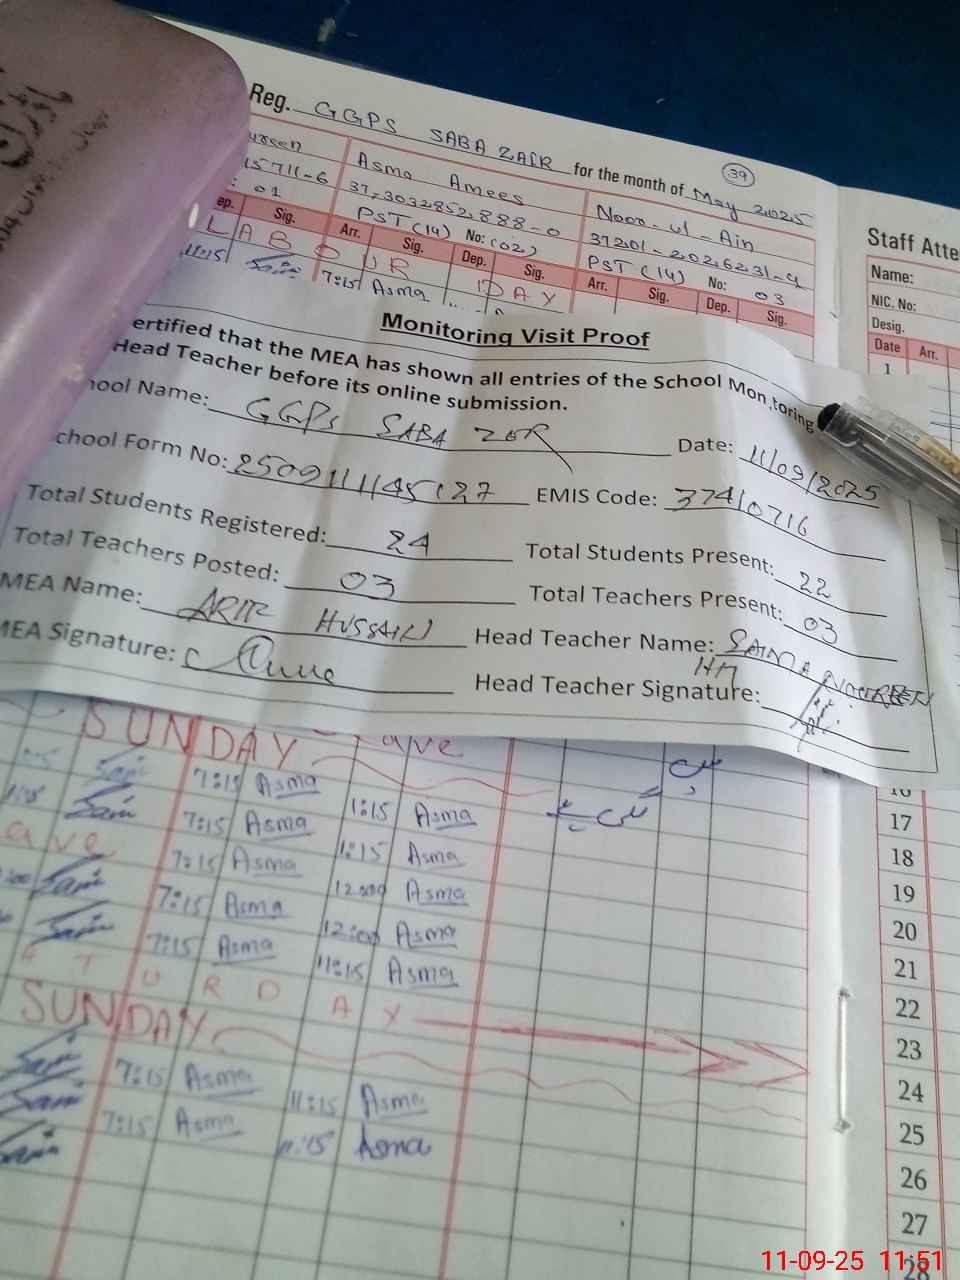 Reg. GGPS SABA ZAIR for the month of May 2025
39
ureen Asma Amees Noor-ul-Ain
15711-6 37303285288-0 37201-2026231-4
: 01 PST (14) No: (02) PST (14) No: 03
ep. Sig. Arr. Sig. Dep. Sig. Arr. Sig. Dep. Sig.
LABOUR DAY
11:15 7:15 Asma
Staff Atte
Name:
NIC. No:
Desig.
Date Arr.
1
Monitoring Visit Proof
ertified that the MEA has shown all entries of the School Monitoring
Head Teacher before its online submission.
hool Name: GGPS SABA ZER Date: 11/09/2025
chool Form No: EMIS Code: 37410716
Total Students Registered: 24 Total Students Present: 22
Total Teachers Posted: 03 Total Teachers Present: 03
MEA Name: HUSSAIN Head Teacher Name: SAIMA NOUREEN
MEA Signature: Head Teacher Signature:
HM
SUNDAY ave
7:15 Asma 1:15 Asma
7:15 Asma 1:15 Asma
ave 7:15 Asma 12:00 Asma
7:15 Asma 12:00 Asma
7:15 Asma 11:15 Asma
A T U R D A Y
SUNDAY
7:15 Asma 11:15 Asma
7:15 Asma 11:15 Asma
16
17
18
19
20
21
22
23
24
25
26
27
28
11-09-25 11:51